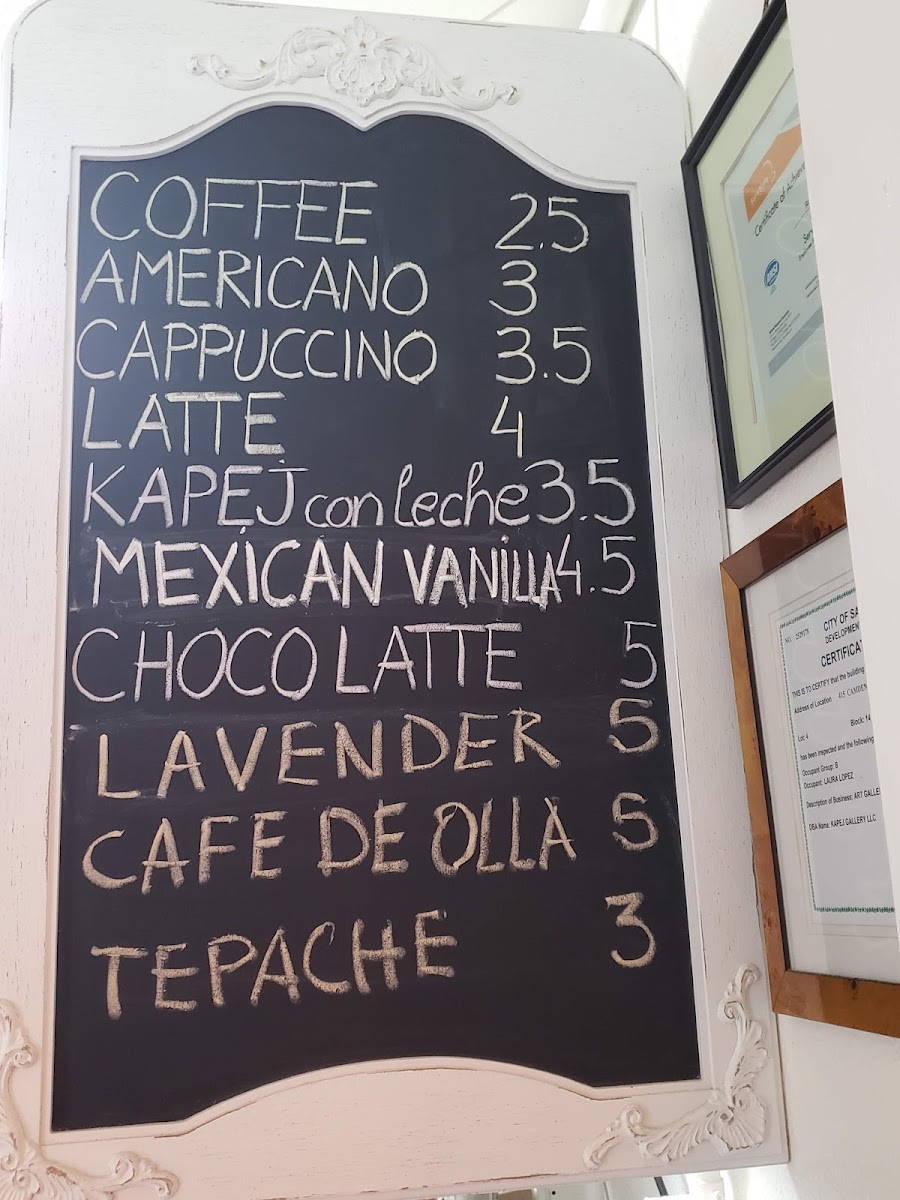 COFFEE 2.5
AMERICANO 3
CAPPUCCINO 3.5
LATTE 4
KAPEJ con leche 3.5
MEXICAN VANILLA 4.5
CHOCO LATTE 5
LAVENDER 5
CAFE DE OLLA 5
TEPACHE 3
Certificate of Achieve
CITY OF SA
DEVELOPMEN
CERTIFICA
THIS IS TO CERTIFY that the building
Address of Location 415 CAMDEN
Block: 14
Lot: 4
has been inspected and the following
Occupant Group: B
Occupant: LAURA LOPEZ
Description of Business: ART GALLE
DBA Name: KAPEJ GALLERY LLC